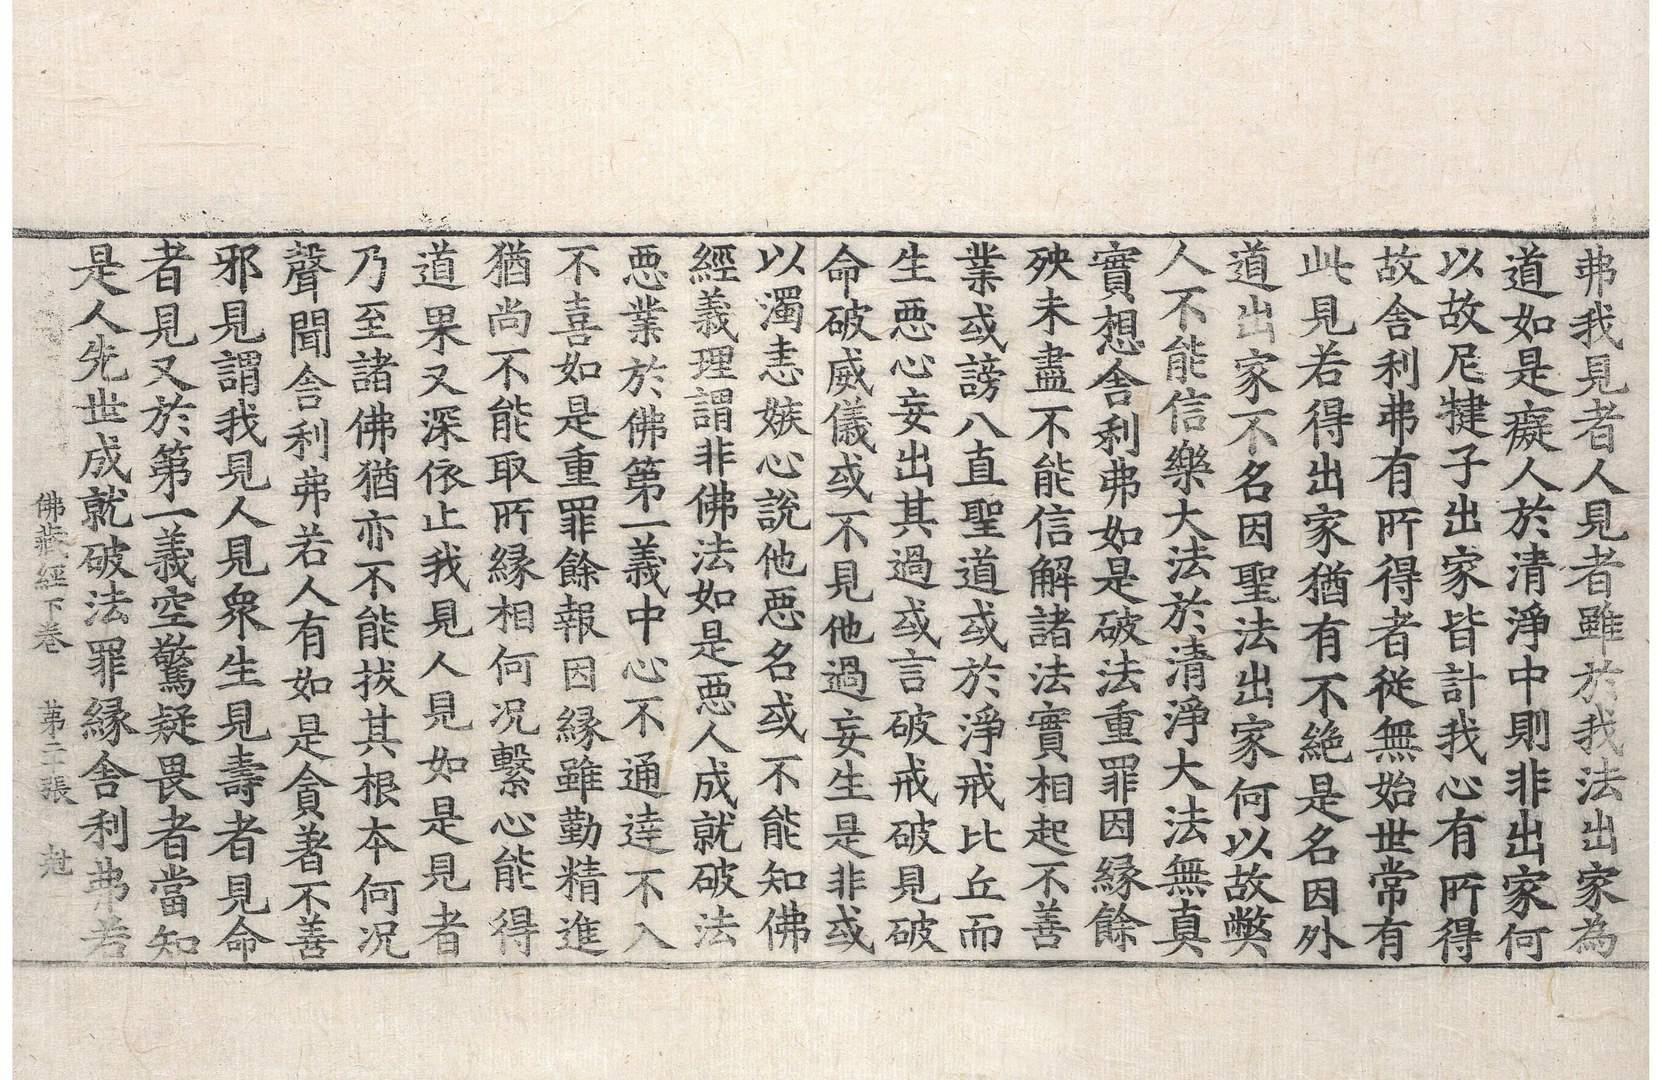 弗我見者人見者雖於我法出家為
道如是癡人於清淨中則非出家何
以故尼犍子出家皆計我心有所得
故舍利弗有所得者從無始世常有
此見若得出家猶有不絶是名因外
道出家不名因聖法出家何以故弊
人不能信樂大法於清淨大法無真
實想舍利弗如是破法重罪因縁餘
殃未盡不能信解諸法實相起不善
業或謗八直聖道或於淨戒比丘而
生惡心妄出其過或言破戒破見破
命破威儀或不見他過妄生是非或
以濁恚嫉心說他惡名或不能知佛
經義理謂非佛法如是惡人成就破法
惡業於佛第一義中心不通達不入
不喜如是重罪餘報因縁雖勤精進
猶尚不能取所縁相何況繫心能得
道果又深依止我見人見如是見者
乃至諸佛猶亦不能拔其根本何況
聲聞舍利弗若人有如是貪著不善
邪見謂我見人見衆生見壽者見命
者見又於第一義空驚疑畏者當知
是人先世成就破法罪縁舍利弗若
佛藏經下卷　第二張